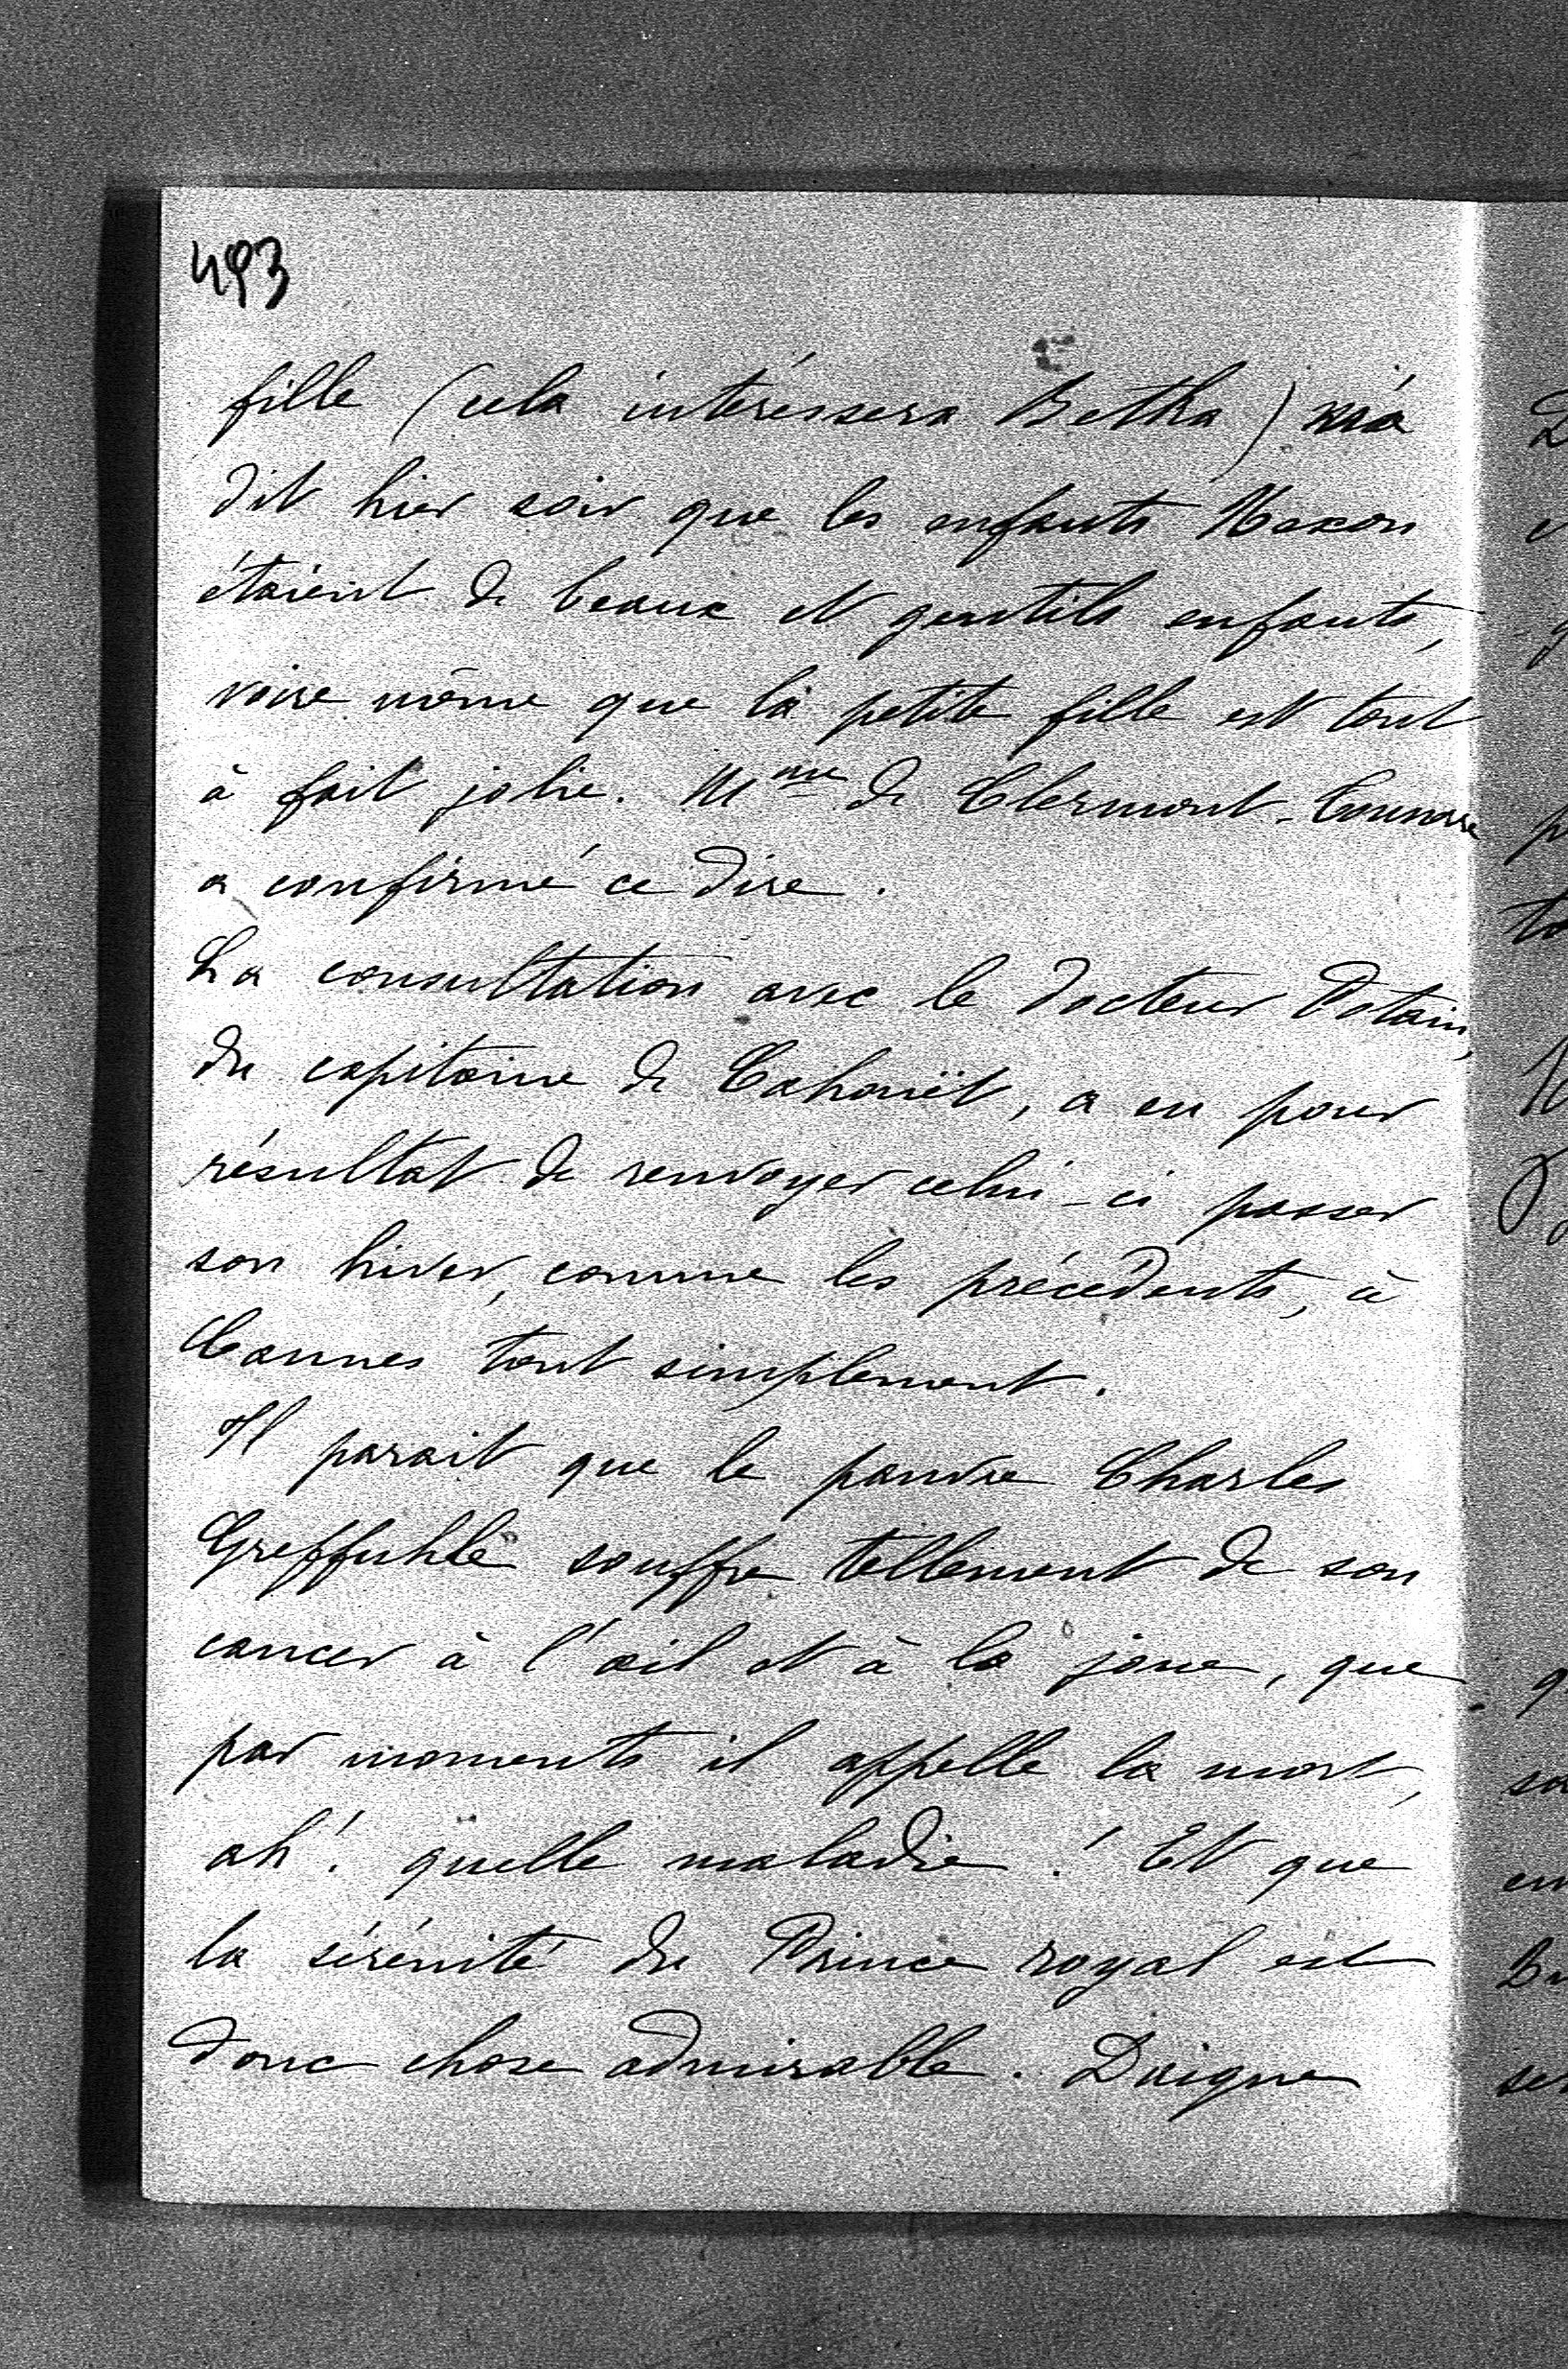 493
fille (cela intéressera Betka) m'a
dit hier soir que les enfants Nexon
étaient de beaux et gentils enfants,
voire même que la petite fille est tout
à fait jolie. Mme de Clermont-Tonnerre
a confirmé ce dire.
La consultation avec le docteur Potain,
du capitaine de Cahouët, a eu pour
résultat de renvoyer celui-ci passer
son hiver, comme les précédents, à
Cannes tout simplement.
Il parait que le pauvre Charles
Greffuhle souffre tellement de son
cancer à l'œil et à la joue, que
par moments il appelle la mort,
ah! quelle maladie! Et que
la sérénité du Prince royal est
donc chose admirable. Daigne